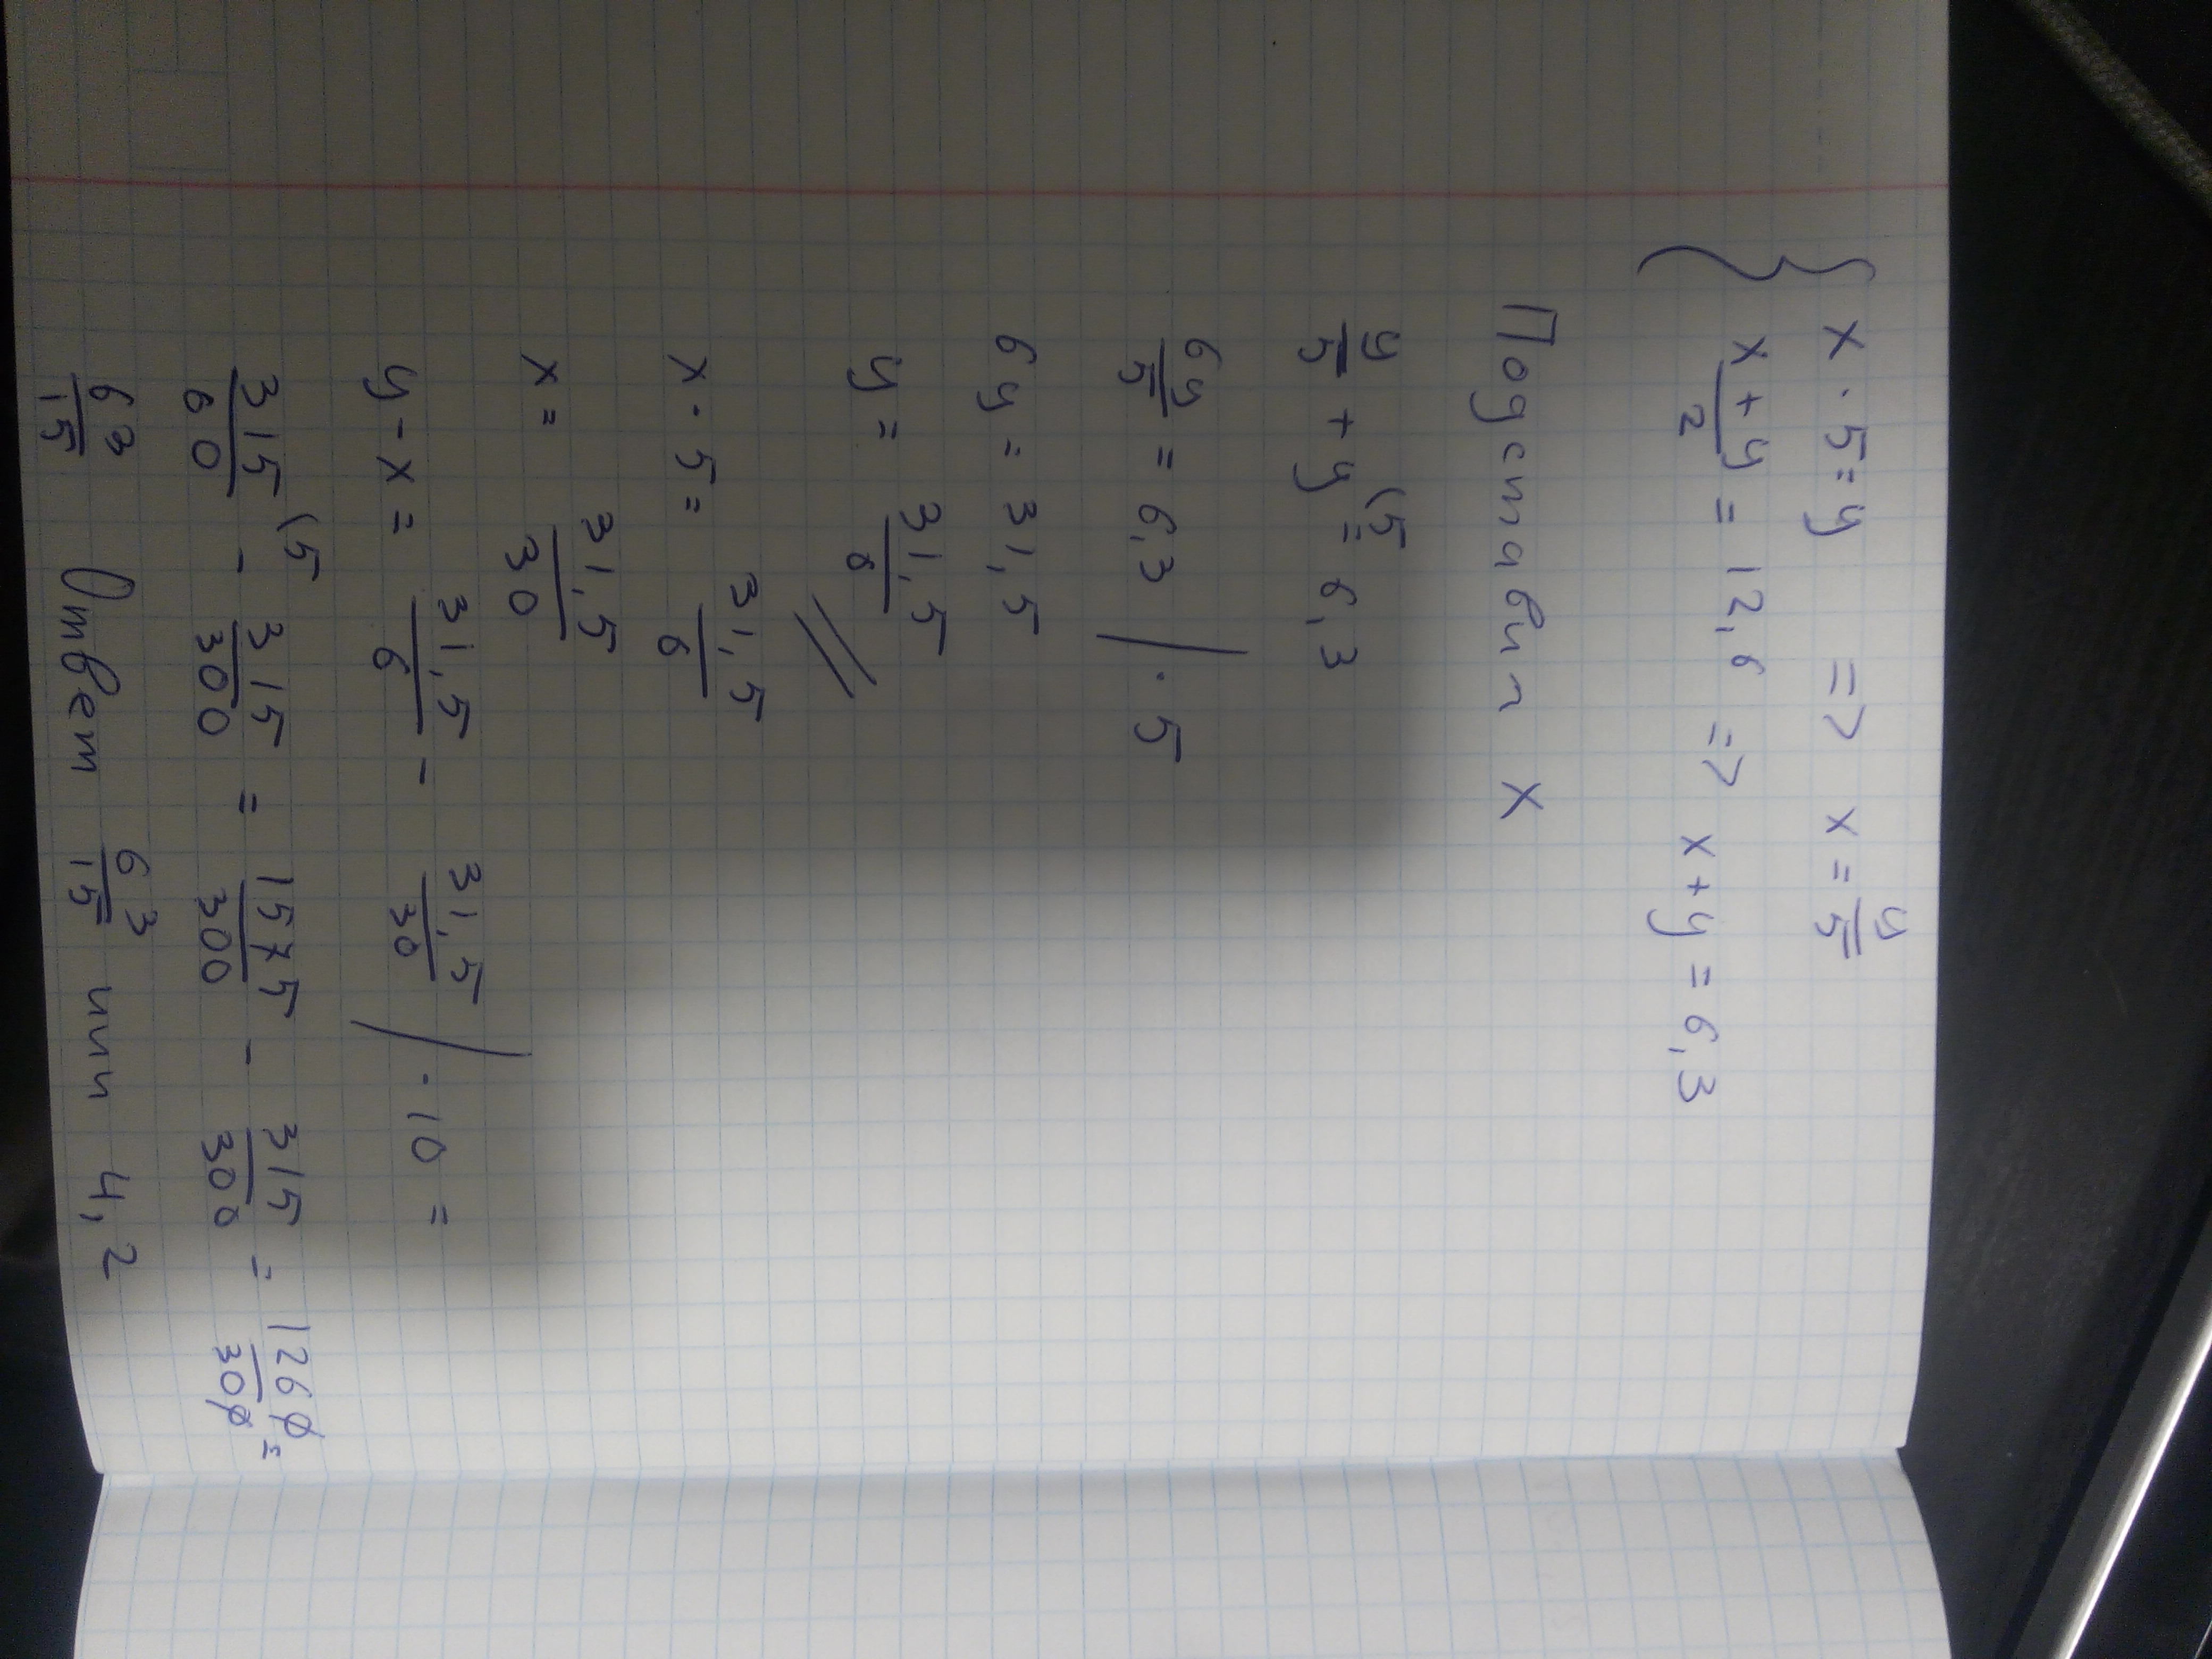 x · 5 = y => x = y/5
(x + y)/2 = 12,6 => x + y = 6,3
Подставил x
y/5 + y (5 = 6,3
6y/5 = 6,3 / · 5
6y = 31,5
y = 31,5/6 //
x · 5 = 31,5/6
x = 31,5/30
y - x = 31,5/6 - 31,5/30 / · 10 =
315/60 (5 - 315/300 = 1575/300 - 315/300 = 1260/300 =
63/15 Ответ 63/15 или 4,2